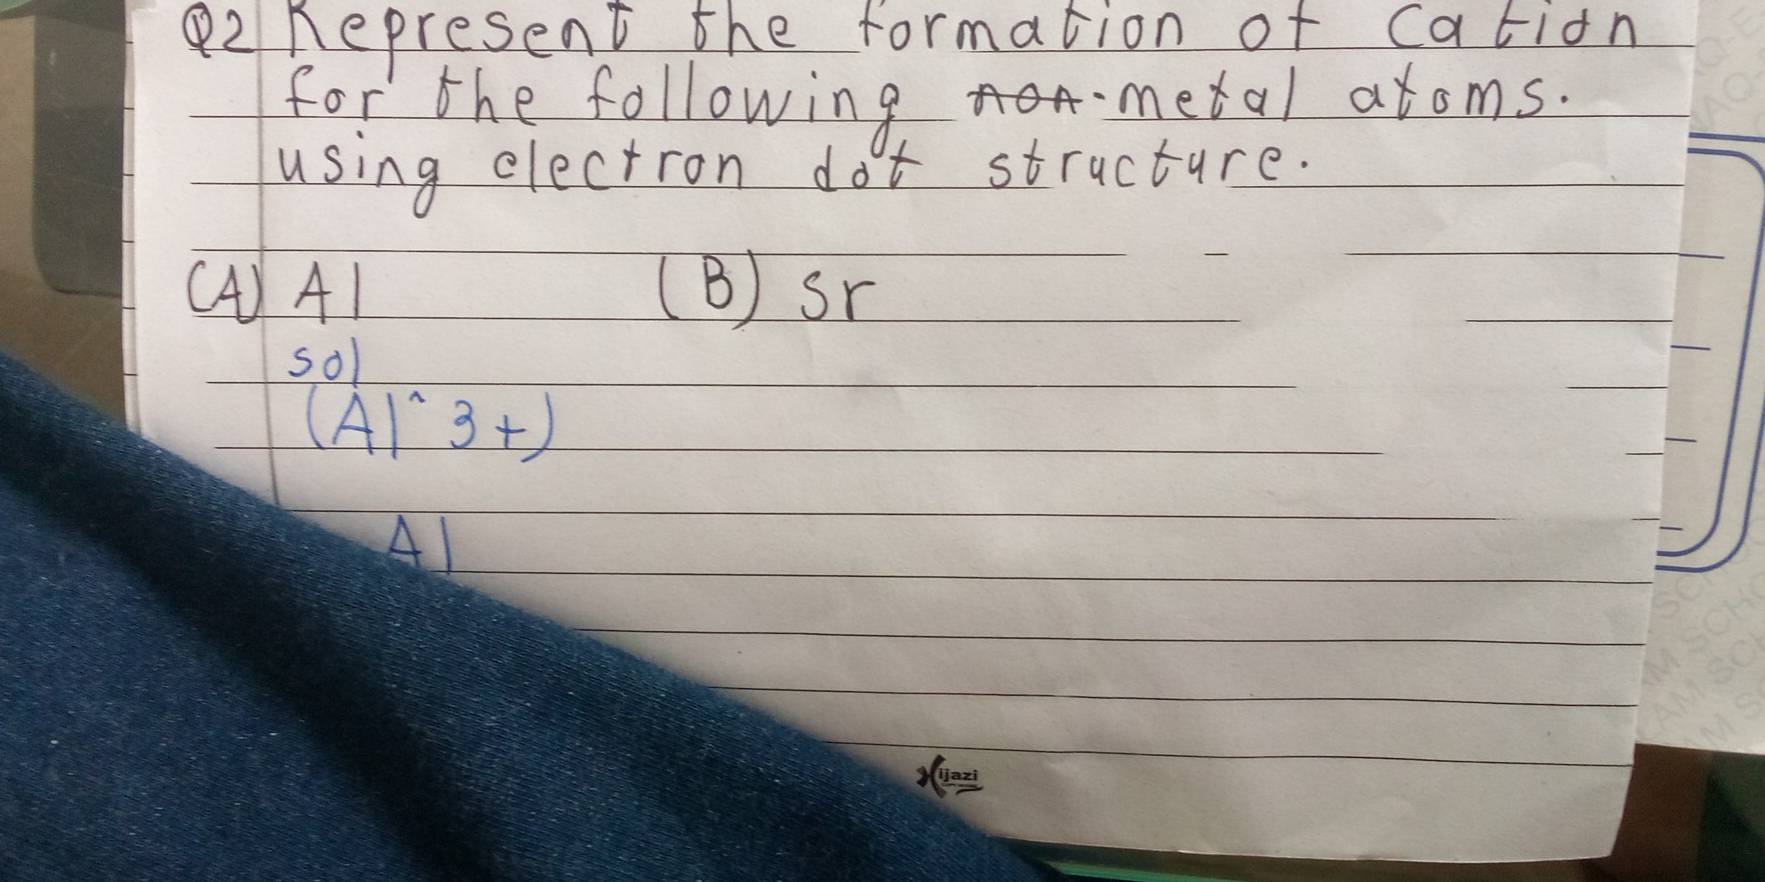 Q2 Represent the formation of cation
for the following non-metal atoms.
using electron dot structure.
(A) Al (B) Sr
sol
(Al^3+)
Al
Hijazi